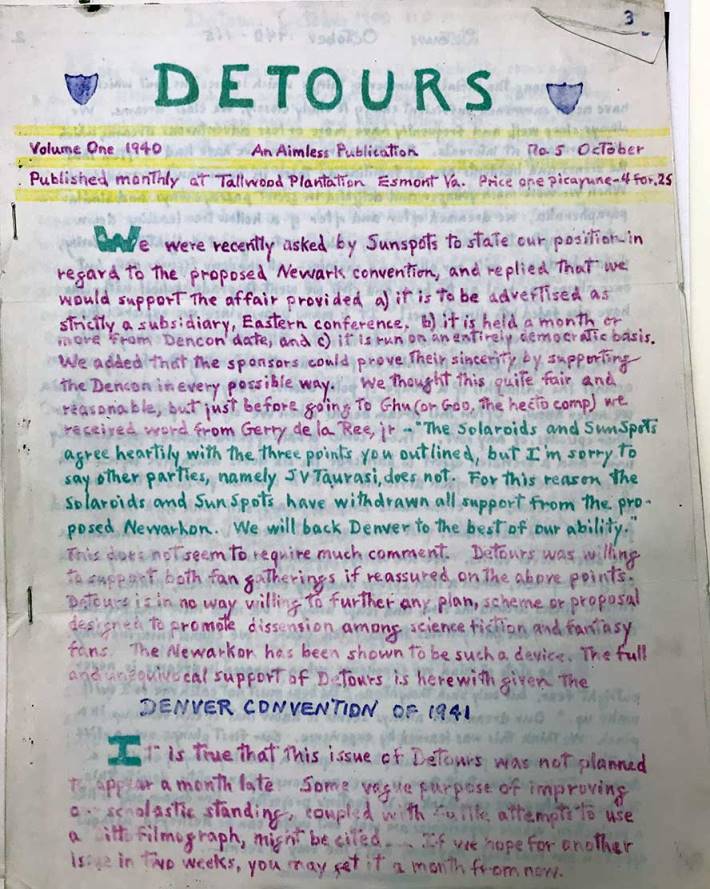 3
DETOURS
Volume One 1940 An Aimless Publication No. 5 October
Published monthly at Tallwood Plantation Esmont Va. Price one picayune-4 for .25
We were recently asked by Sunspots to state our position in
regard to the proposed Newark convention, and replied that we
would support the affair provided a) it is to be advertised as
strictly a subsidiary, Eastern conference, b) it is held a month or
more from Dencon date, and c) it is run on an entirely democratic basis.
We added that the sponsors could prove their sincerity by supporting
the Dencon in every possible way. We thought this quite fair and
reasonable, but just before going to Ghu (or Goo, the hecto comp) we
received word from Gerry de la Ree, jr - "The Solaroids and SunSpots
agree heartily with the three points you outlined, but I'm sorry to
say other parties, namely JV Taurasi, does not. For this reason the
Solaroids and SunSpots have withdrawn all support from the pro-
posed Newarkon. We will back Denver to the best of our ability."
This does not seem to require much comment. Detours was willing
to support both fan gatherings if reassured on the above points.
Detours is in no way willing to further any plan, scheme or proposal
designed to promote dissension among science fiction and fantasy
fans. The Newarkon has been shown to be such a device. The full
and unequivocal support of Detours is herewith given the
DENVER CONVENTION OF 1941
It is true that this issue of Detours was not planned
to appear a month late. Some vague purpose of improving
our scholastic standing, coupled with futile attempts to use
a Ditto filmograph, might be cited... If we hope for another
issue in two weeks, you may get it a month from now.